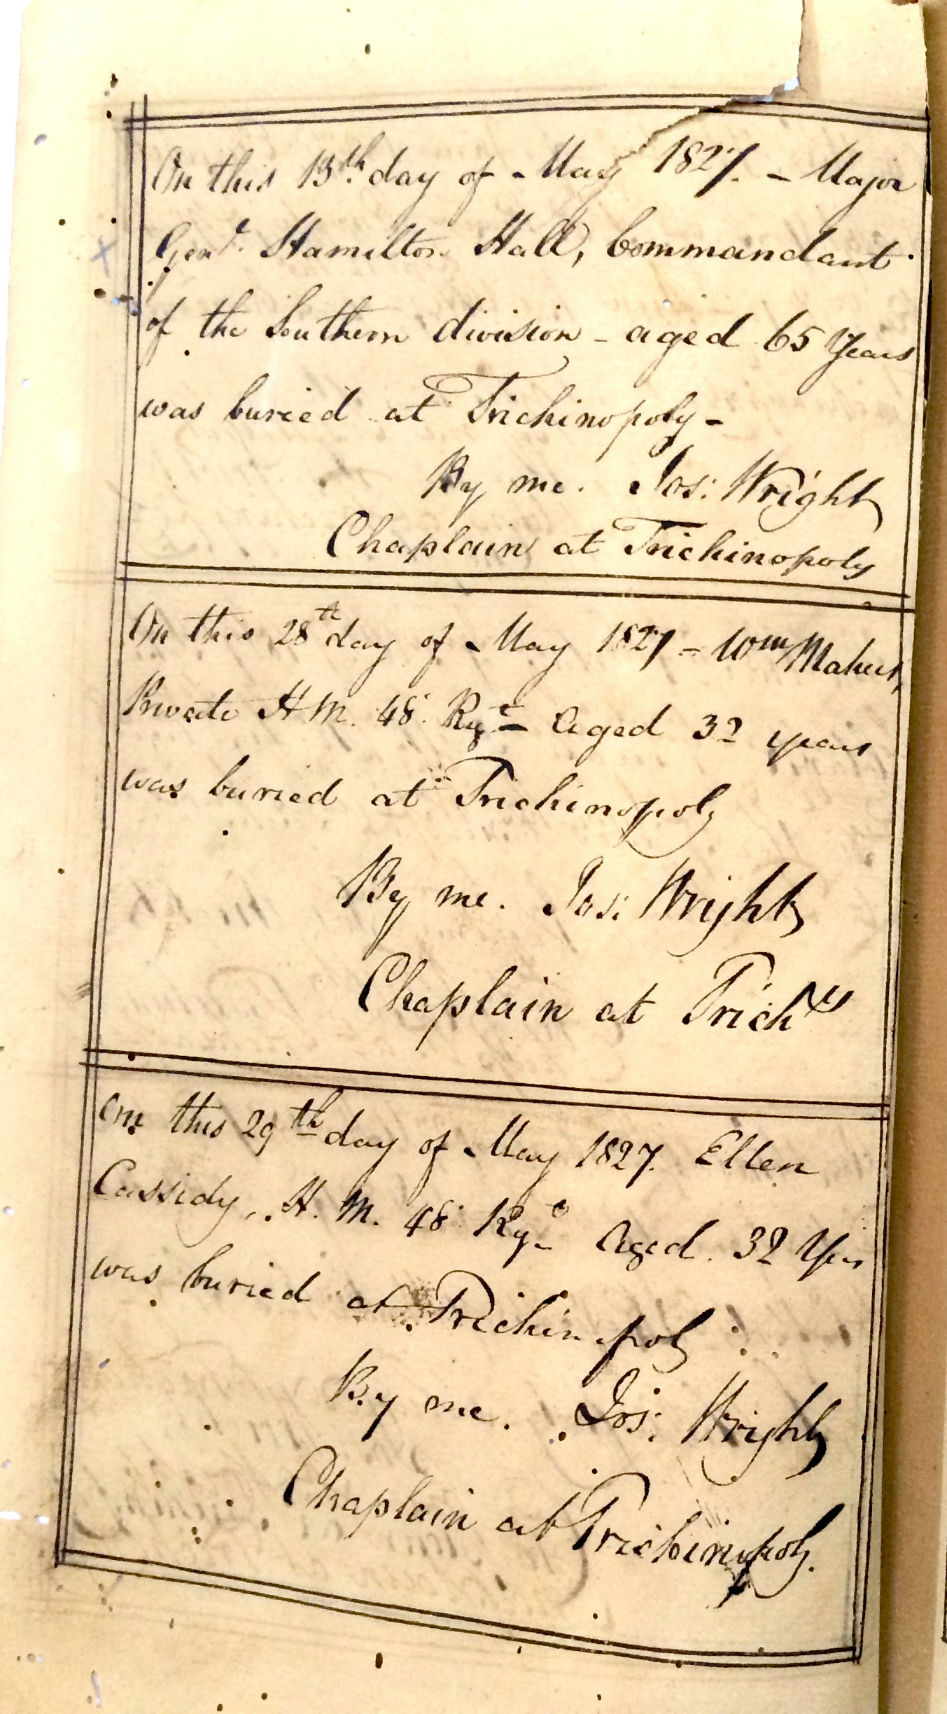 On this 13th day of May 1827. - Major
Genl. Hamilton Hall, Commandant
of the Southern division - aged 65 Years
was buried at Trichinopoly -
By me. Jos: Wright
Chaplain at Trichinopoly
On this 28th day of May 1827 - Wm
Private H. M. 48. Regt - Aged 32 years
was buried at Trichinopoly
By me. Jos: Wright
Chaplain at Trichy
On this 29th day of May 1827. Ellen
Cassidy, H. M. 48 Regt Aged. 32 Yrs
was buried at Trichinopoly
By me. Jos: Wright
Chaplain at Trichinopoly.